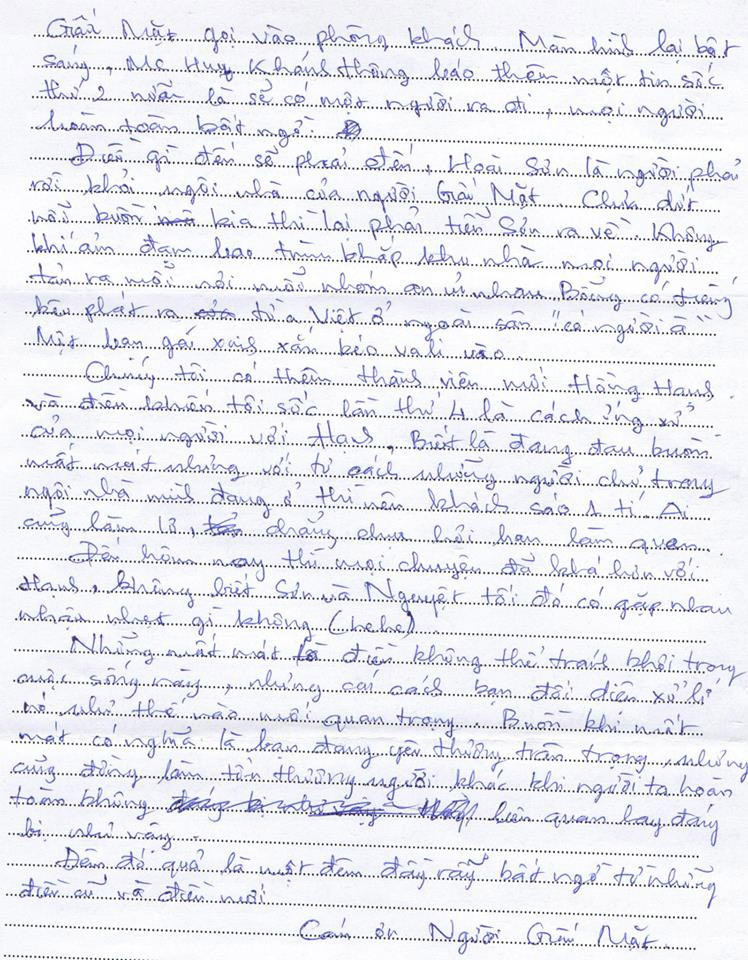 Giấu Mặt gọi vào phòng khách. Màn hình lại bật
sáng, MC Huy Khánh thông báo thêm một tin sốc
thứ 2 nữa là sẽ có một người ra đi, mọi người
hoàn toàn bất ngờ.
Điều gì đến sẽ phải đến, Hoài Sơn là người phải
rời khỏi ngôi nhà của người Giấu Mặt. Chưa dứt
nỗi buồn kia thì lại phải tiễn Sơn ra về. Không
khí ảm đạm bao trùm khắp khu nhà mọi người
tản ra mỗi nơi mỗi nhóm an ủi nhau. Bỗng có tiếng
kêu phát ra từ a Việt ở ngoài sân "có người à"
Một bạn gái xinh xắn kéo vali vào.
Chúng tôi có thêm thành viên mới Hồng Hạnh.
và điều khiến tôi sốc lần thứ 4 là cách ứng xử
của mọi người với Hạnh, Biết là đang đau buồn
mất mát nhưng với tư cách những người chủ trong
ngôi nhà mình đang ở thì nên khách sáo 1 tí. Ai
cũng làm lơ, chẳng chịu hỏi han làm quen.
Đến hôm nay thì mọi chuyện đã khá hơn với
Hạnh, không biết Sơn và Nguyệt tối đó có gặp nhau
nhậu nhẹt gì không (hehe)
Những mất mát là điều không thể tránh khỏi trong
cuộc sống này, nhưng cái cách bạn đối diện xử lí
nó như thế nào mới quan trọng. Buồn khi mất
mát có nghĩa là bạn đang yêu thương trân trọng, nhưng
cũng đừng làm tổn thương người khác khi người ta hoàn
toàn không liên quan hay đáng
bị như vậy.
Đêm đó quả là một đêm đầy rẫy bất ngờ từ những
điều cũ và điều mới.
Cám ơn Người Giấu Mặt.